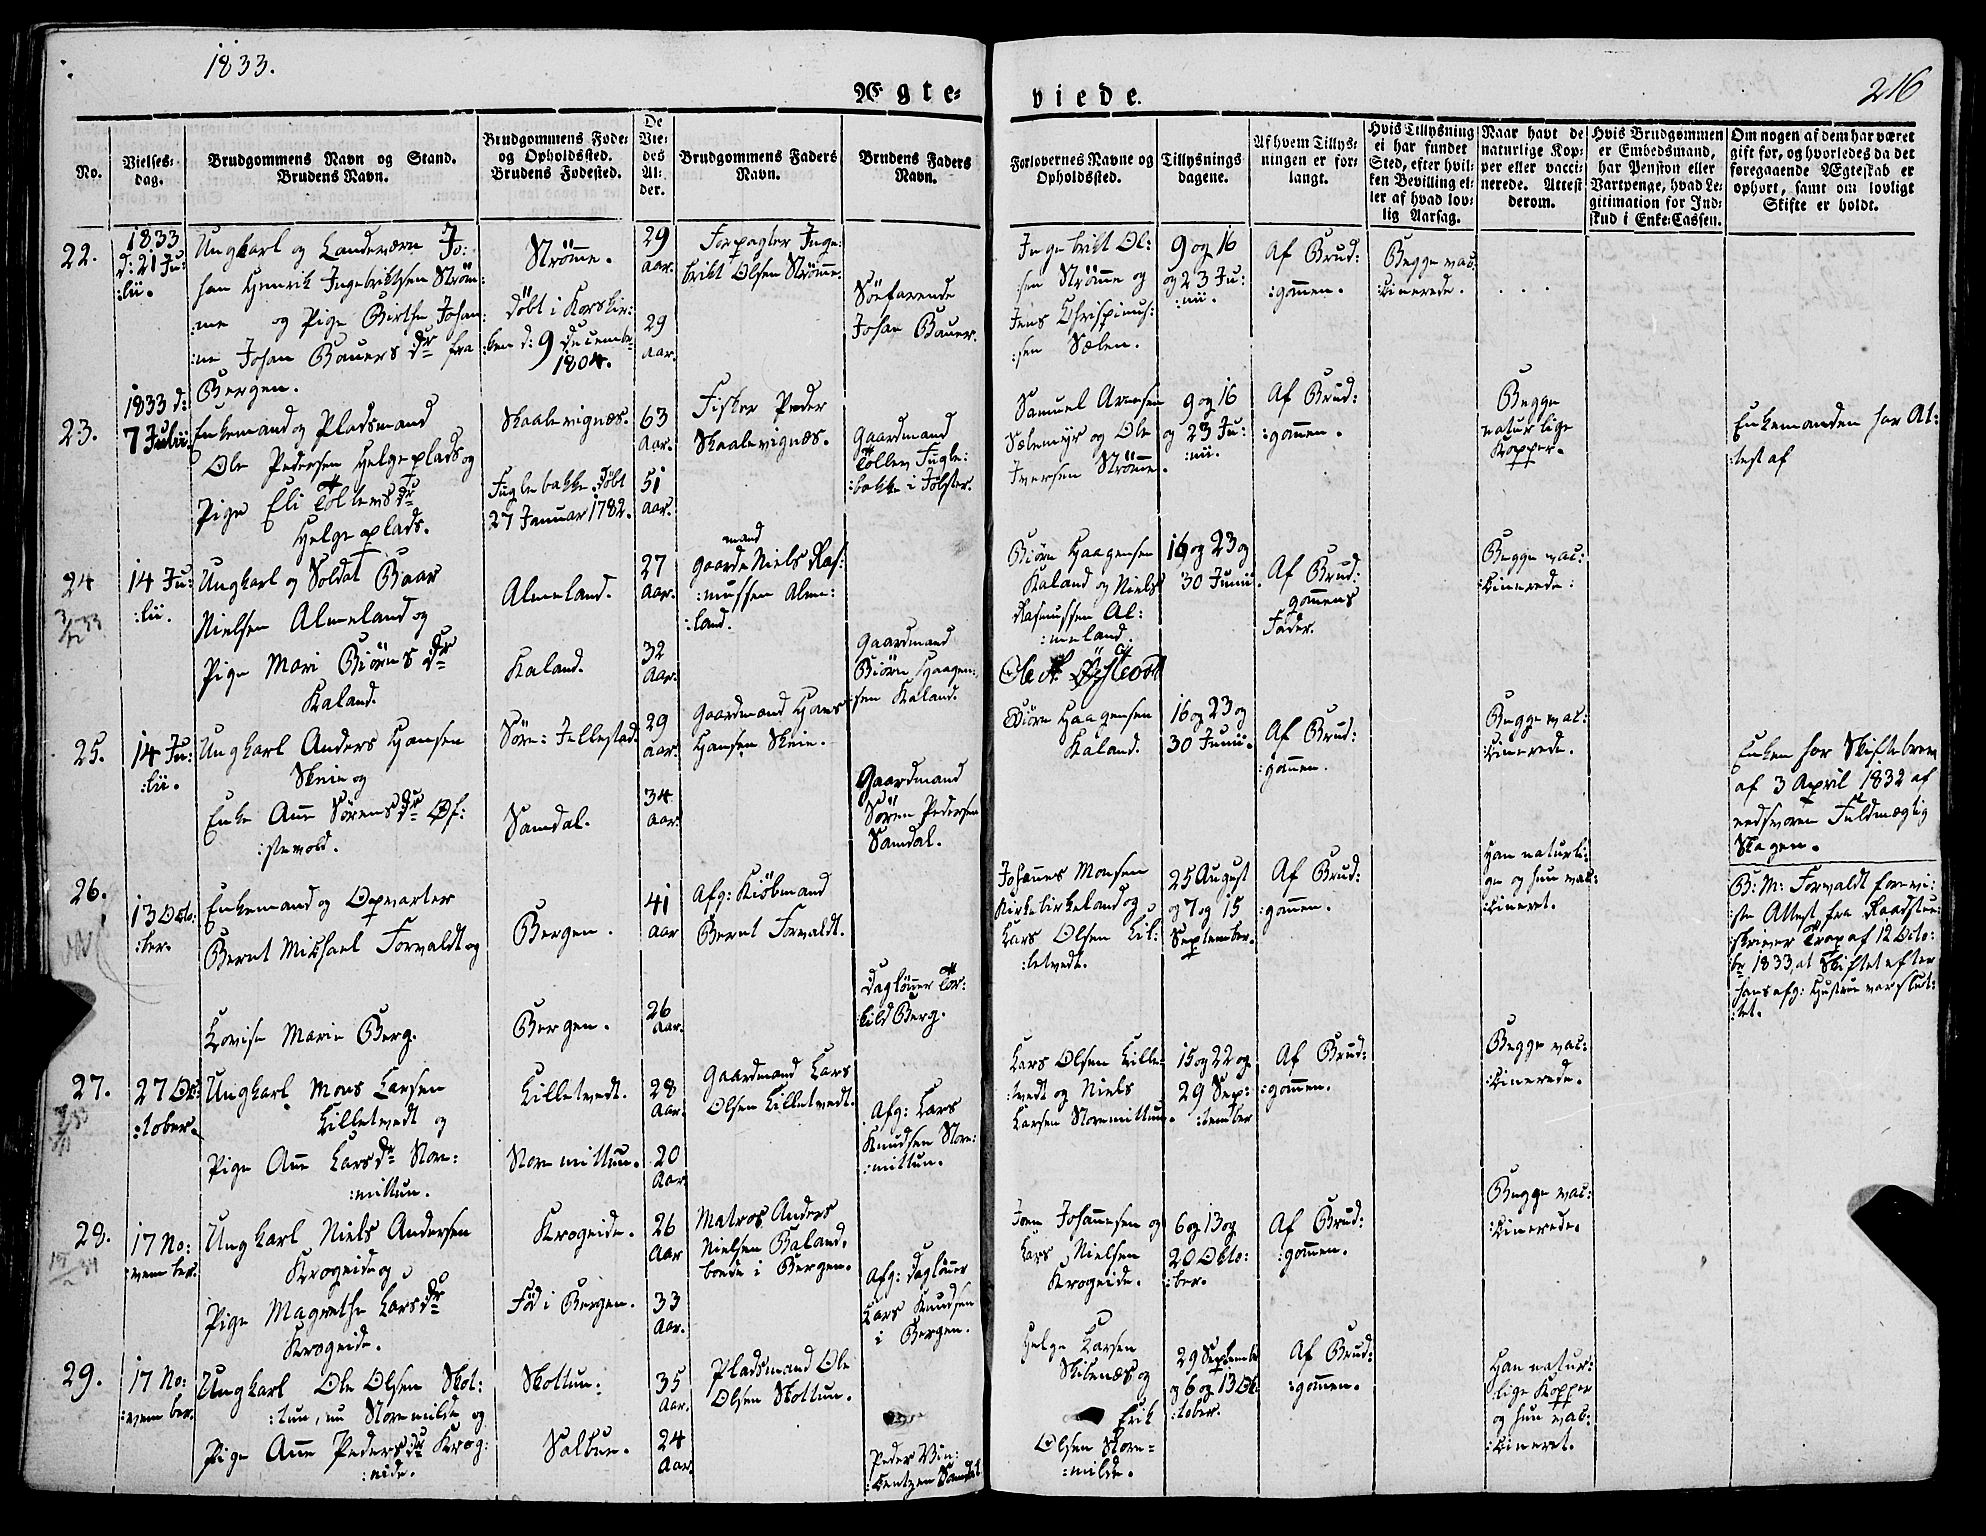 1833.
Ægte-
viede.
216
No.
Vielses-
dag.
Brudgommens Navn og Stand.
Brudens Navn.
Brudgommens Føde-
og Opholdssted.
Brudens Fødested.
De
Vie-
des
Al-
der.
Brudgommens Faders
Navn.
Brudens Faders
Navn.
Forlovernes Navne og
Opholdssted.
Tillysnings
dagene.
Af hvem Tillys-
ningen er for-
langt.
Hvis Tillysning
ei har fundet
Sted, efter hvil-
ken Bevilling el-
ler af hvad lov-
lig Aarsag.
Naar havt de
naturlige Kop-
per eller vacci-
nerede. Attest
derom.
Hvis Brudgommen
er Embedsmand,
har Pension eller
Vartpenge, hvad Le-
gitimation for Ind-
skud i Enke-Cassen.
Om nogen af dem har været
gift før, og hvorledes da det
foregaaende Ægteskab er
ophørt, samt om lovligt
Skifte er holdt.
22.
1833
d: 21 Ju:
:lii.
Ungkarl og Landeværn Jo:
han Henrik Ingebriktsen Strøm:
:me og Pige Birthe Johan:
:ne Johan Bauers Dr fra
Bergen.
Strømme.
døbt i Korskir:
:ken d: 9 Decembr
1804.
29
Aar.
29
Aar.
Forpagter Inge:
brikt Olsen Strømme.
Søefarende
Johan Bauer.
Ingebrikt Ol:
:sen Strømme og
Jens Chrispinus:
:sen Sælen.
9 og 16
og 23 Ju:
:nii.
Af Brud:
:gommen.
Begge vac:
:cinerede.
. . .
23.
1833 d:
7 Julii
Enkemand og Pladsmand
Ole Pedersen Helgeplads og
Pige Eli Tollevs Dr
Helgeplads.
Skaalevignæs.
Fuglebakke. Døbt
27 Januar 1782.
63
Aar.
51
Aar.
Fisker Peder
Skaalevignæs.
Gaardmand
Tollev Fugle:
:bakke i Jølster.
Samuel Arnesen
Sælemyr og Ole
Iversen Strømme.
9 og 16
og 23 Ju:
:nii.
Af Brud:
:gommen.
Begge
naturlige
Kopper.
Enkemanden har At:
:test af
24
14 Ju:
:lii.
Ungkarl og Soldat Baar
Nielsen Almeland og
Pige Mari Biørns Dr
Kaland.
Almeland.
Kaland.
27
Aar.
32
Aar.
mand
Gaards Niels Ras:
:mussen Alme:
:land.
Gaardmand
Biørn Haagen:
:sen Kaland.
Biørn Haagensen
Kaland og Niels
Rasmussen Al:
:meland.
16 og 23 og
30 Junii.
Af Brud:
gommens
Fader.
Begge vac:
:cinerede.
25.
14 Ju:
:lii.
Ungkarl Anders Hansen
Skeie og
Enke Ane Sørens Dr Øs:
:stevold.
Søre: Jellestad.
Samdal.
29
Aar.
34
Aar.
Gaardmand Hans
Hansen Skeie.
Gaardmand
Søren Pedersen
Samdal.
Biørn Haagensen
Kaland.
16 og 23 og
30 Junii.
Af Brud:
:gommen.
Begge vac:
:cinerede.
Enken har Skiftebrev
af 3 April 1832 af
edsvoren Fuldmægtig
Skagen.
26.
13 Octo:
:ber.
Enkemand og Opvarter
Bernt Michael Forvaldt og
Lovise Marie Berg.
Bergen.
Bergen.
41
Aar
26
Aar.
Afg: Kiøbmand
Bernt Forvaldt.
Dagløner Tor:
:kild Berg.
Johannes Monsen
Kirkebirkeland og
Lars Olsen Lil:
:letvedt.
25 August
og 7 og 15
September.
Af Brud:
:gommen.
Han naturli:
ge og hun vac:
:cineret.
B: M: Forvaldt forevi:
ste Attest fra Raadstue:
skriver Trap af 12 Octo:
br 1833, at Skiftet efter
hans afg: Hustrue var slut:
:tet.
27.
27 Oc:
:tober.
Ungkarl Mons Larsen
Lilletvedt og
Pige Ane Lars Dr Store:
:mittun.
Lilletvedt.
Storemittun.
28
Aar.
20
Aar
Gaardmand Lars
Olsen Lilletvedt.
Afg: Lars
Knudsen Store:
:mittun.
Lars Olsen Lille:
:tvedt og Niels
Larsen Storemittun.
15 og 22 og
29 Sep:
:tember
Af Brud:
:gommen.
Begge vac:
:cinerede.
28.
17 No:
:vember.
Ungkarl Niels Andersen
Krogeide og
Pige Magrethe Lars Dr
Krogeide.
Krogeide.
Fød i Bergen.
26
Aar
33
Aar.
Matros Anders
Nielsen Baland.
boede i Bergen.
Afg: Dagløner
Lars Knudsen
i Bergen.
Joen Johannesen og
Lars Nielsen
Krogeide.
6 og 13 og
20 Octo:
:ber.
Af Brud:
:gommen.
Begge vac:
:cinerede.
29.
17 No:
:vember.
Ungkarl Ole Olsen Skot:
:tun, nu Storemilde og
Pige Ane Peders Dr Krog:
:eide.
Skottun.
Salbue.
35
Aar.
24
Aar.
Pladsmand Ole
Olsen Skottun.
Peder Vin:
:centzen Samdal
Helge Larsen
Skibenæs og
Erik
Olsen Store=
:milde.
29 September
og 6 og 13 Oc
:tober.
Af Brud:
:gommen.
Han natur:
:lige Kopper
og hun vac:
:cineret.